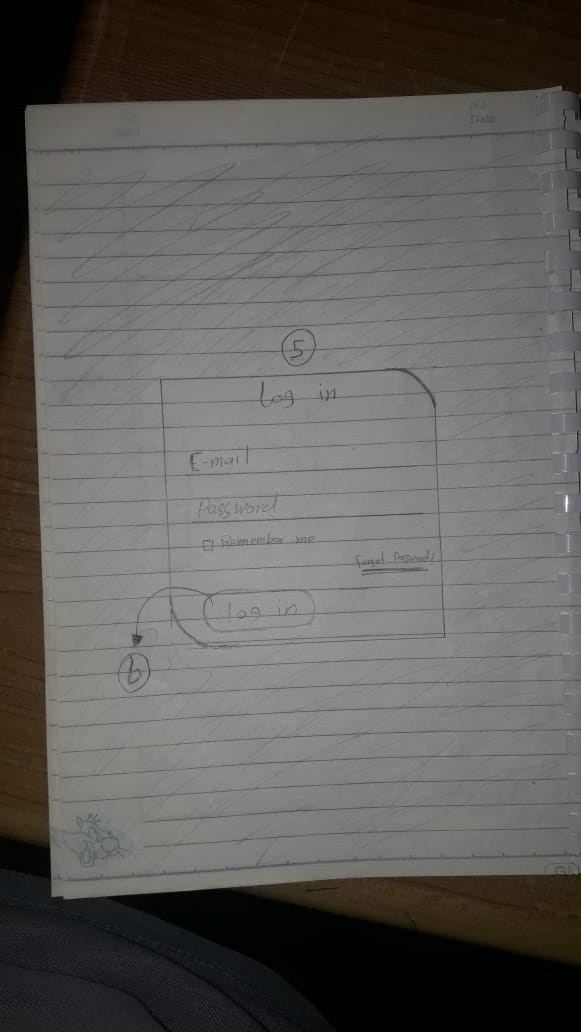 No.
Date
5
Log in
E-mail
Password
Remember me
forgot Password?
log in
6